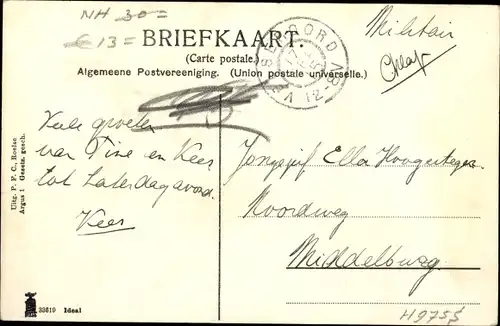 NH 30=
€ 13=
BRIEFKAART.
(Carte postale.)
Algemeene Postvereeniging. (Union postale universelle.)
Militair
Veele groeten
van Tine en Kees
tot Zaterdagavond.
Kees
Jongejuf Ella Hoogesteger
Noordweg
Middelburg
Uitg. P. P. C., Roelse
Argus 1 Geests. gesch.
33619 Ideal
H9755